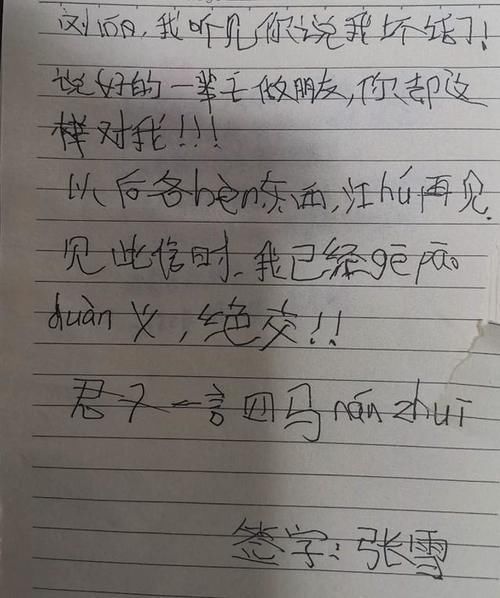 刘涵，我听见你说我坏话了！
说好的一辈子做朋友，你却这
样对我！！！
以后各bèn东西，江hú再见.
见此信时，我已经gē pāo
duàn义，绝交！！
君子一言四马nán zhuī
签字：张雪